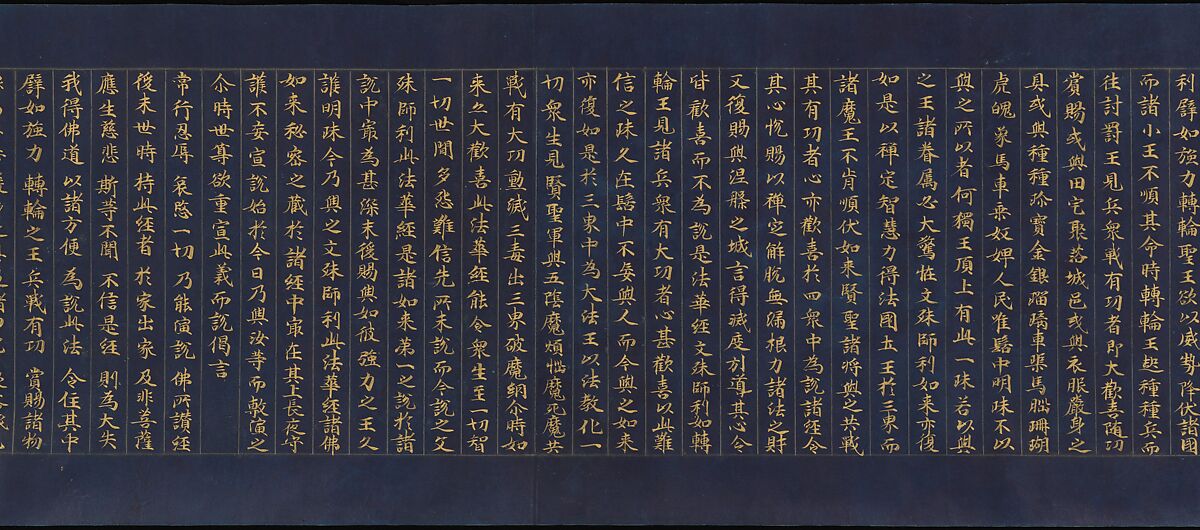 利譬如強力轉輪聖王欲以威勢降伏諸國
而諸小王不順其命時轉輪王起種種兵而
往討罰王見兵衆戰有功者即大歡喜隨功
賞賜或與田宅聚落城邑或與衣服嚴身之
具或與種種珍寶金銀瑠璃車渠馬腦珊瑚
虎魄象馬車乘奴婢人民唯髻中明珠不以
與之所以者何獨王頂上有此一珠若以與
之王諸眷屬必大驚恠文殊師利如來亦復
如是以禪定智慧力得法國土王於三界而
諸魔王不肯順伏如來賢聖諸將與之共戰
其有功者心亦歡喜於四衆中為說諸經令
其心悅賜以禪定解脫無漏根力諸法之財
又復賜與涅槃之城言得滅度引導其心令
皆歡喜而不為說是法華經文殊師利如轉
輪王見諸兵衆有大功者心甚歡喜以此難
信之珠久在髻中不妄與人而今與之如來
亦復如是於三界中為大法王以法教化一
切衆生見賢聖軍與五陰魔煩惱魔死魔共
戰有大功勳滅三毒出三界破魔網尒時如
來亦大歡喜此法華經能令衆生至一切智
一切世間多怨難信先所未說而今說之文
殊師利此法華經是諸如來第一之說於諸
說中最為甚深末後賜與如彼強力之王久
護明珠今乃與之文殊師利此法華經諸佛
如來秘密之藏於諸經中最在其上長夜守
護不妄宣說始於今日乃與汝等而敷演之
尒時世尊欲重宣此義而說偈言
常行忍辱 哀愍一切 乃能演說 佛所讚經
後末世時 持此經者 於家出家 及非菩薩
應生慈悲 斯等不聞 不信是經 則為大失
我得佛道 以諸方便 為說此法 令住其中
譬如強力 轉輪之王 兵戰有功 賞賜諸物